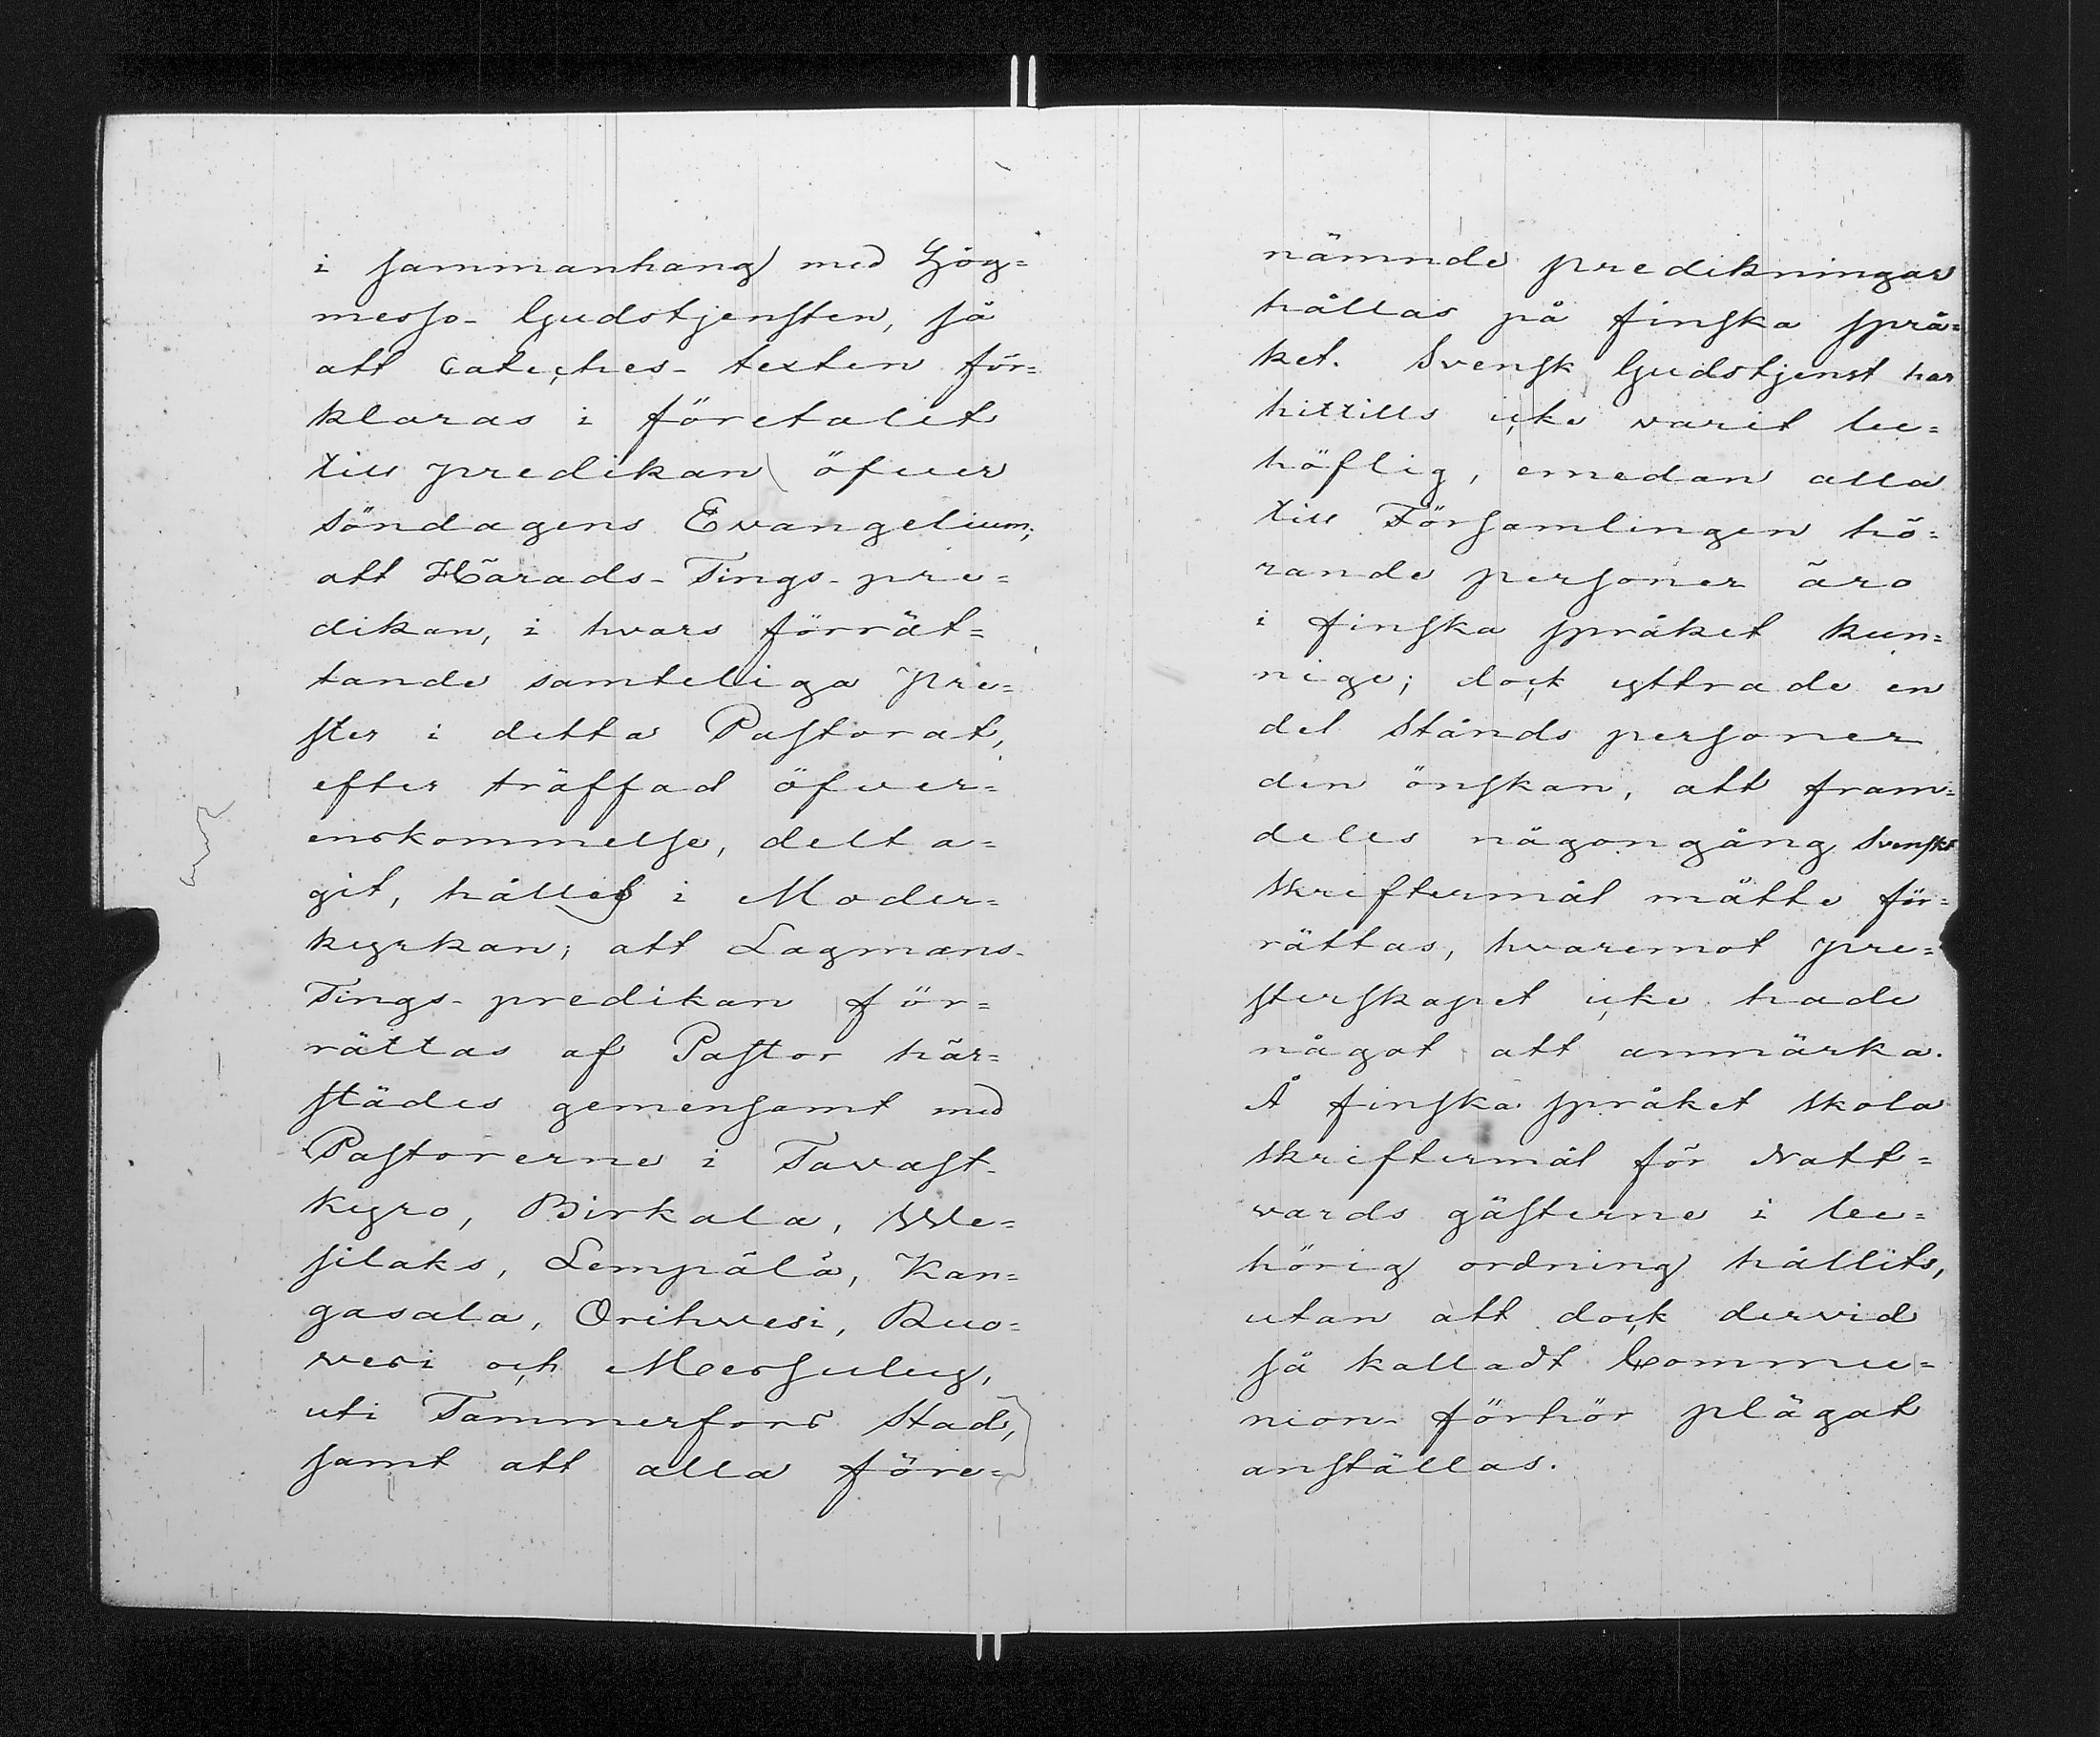 i sammanhang med Hög=
messo- Gudstjensten, så
att Cateches- texten för=
klaras i företalet
till predikan öfver
Söndagens Evangelium;
att Härads- Tings- pre=
dikan, i hvars förrät=
tande samteliga Pre=
ster i detta Pastorat,
efter träffad öfver=
enskommelse, delta=
git, hålles i Moder=
kyrkan; att Lagmans-
Tings- predikan för=
rättas af Pastor här=
städes gemensamt med
Pastorerne i Tavast-
kyro, Birkala, We=
silaks, Lempälä, Kan=
gasala, Orihvesi, Ruo=
vesi och Messuby,
uti Tammerfors Stad,
samt att alla före=
nämnde predikningar
hållas på finska språ=
ket. Svensk Gudstjenst har
hittills icke varit be=
höflig, emedan alla
till Församlingen hö=
rande personer äro
i finska språket kun=
nige; dock yttrade en
del Stånds personer
den önskan, att fram=
deles någongång Svenskt
Skriftermål måtte för=
rättas, hvaremot Pre=
sterskapet icke hade
något att anmärka.
Å finska språket skola
Skriftermål för Natt=
vards gästerne i be=
hörig ordning hållits,
utan att dock dervid
så kalladt Commu=
nion- förhör plägat
anställas.